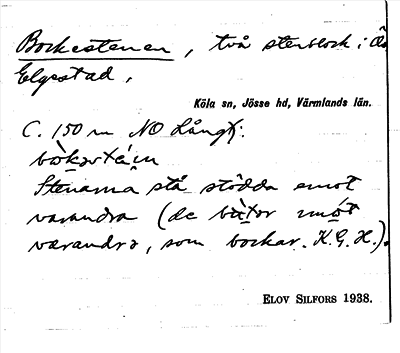 Bockestenen, två stenblock i Ö
Elgestad.
Köla sn, Jösse hd, Värmlands län.
C. 150 m NO Långtj:
Stenarna stå stödda emot
varandra (de
varandra, som bockar. K.G.H.).
ELOV SILFORS 1938.